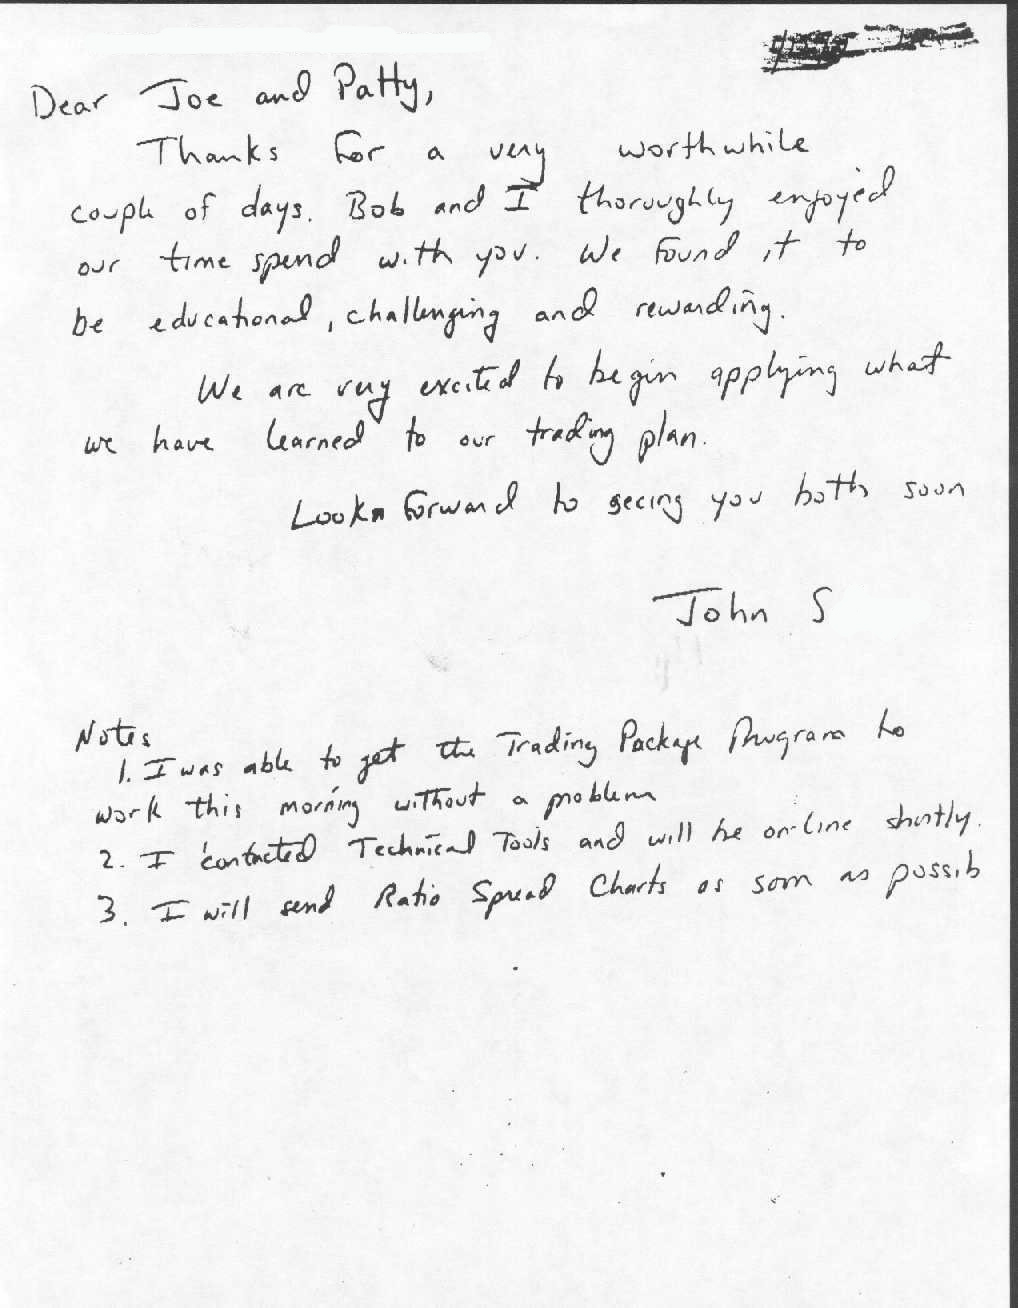 Dear Joe and Patty,
Thanks for a very worthwhile
couple of days. Bob and I thoroughly enjoyed
our time spend with you. We found it to
be educational, challenging and rewarding.
We are very excited to begin applying what
we have learned to our trading plan.
Lookn forward to seeing you both soon
John S
Notes
1. I was able to get the Trading Package Program to
work this morning without a problem
2. I contacted Technical Tools and will be on-line shortly.
3. I will send Ratio Spread Charts as soon as possib